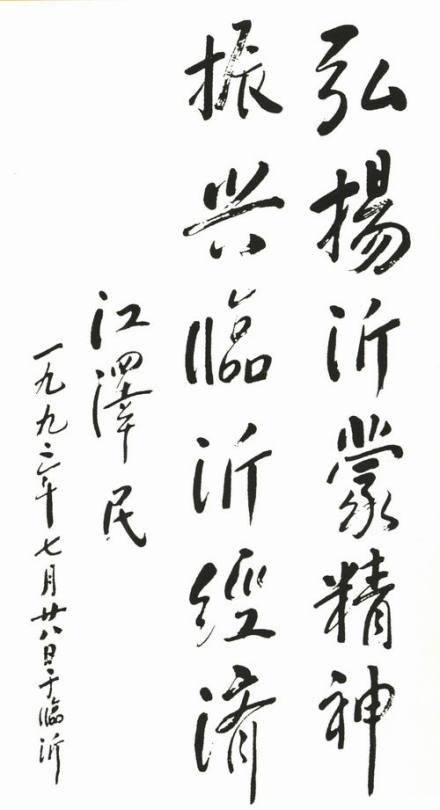 弘揚沂蒙精神
振兴臨沂經济
江澤民
一九九二年七月廿八日于臨沂